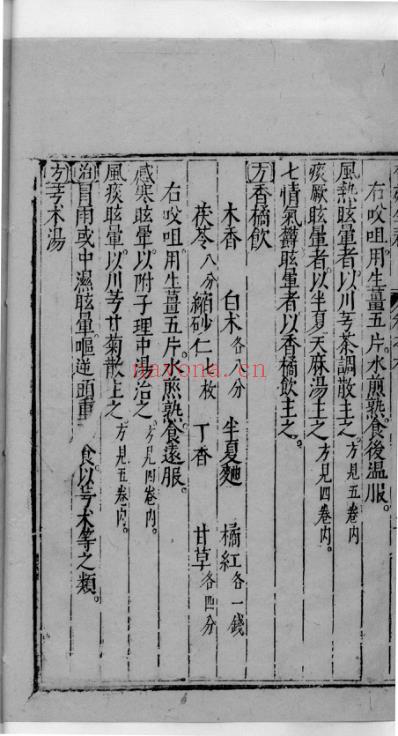 右㕮咀用生薑五片水煎熟食後温服。
風熱眩暈者以川芎茶調散主之方見五卷内
痰厥眩暈者以半夏天麻湯主之方見四卷内。
七情氣欝眩暈者以香橘飲主之。
方香橘飲
木香 白术各八分 半夏麯 橘紅各一錢
茯苓八分 縮砂仁 枚 丁香 甘草各四分
右㕮咀用生薑五片水煎熟食遠服。
感寒眩暈以附子理中湯治之方見四卷内。
風痰眩暈以川芎甘菊散主之方見五卷内。
治冒雨或中濕眩暈嘔逆頭重 食以芎术等之類。
方芎术湯
nayona.cn